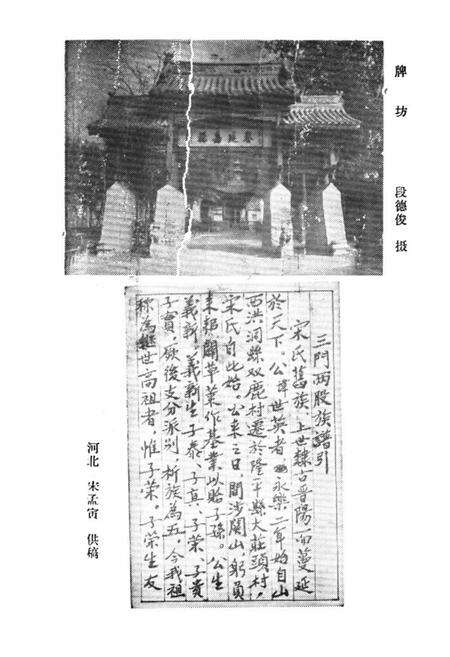 牌坊
段德俊 摄
三門兩股族譜引
宋氏舊族，上世隸古晉陽，而蔓延
於天下。公諱世英者，永樂二年始自山
西洪洞縣双鹿村遷於隆平縣大莊頭村，
宋氏自此始。公來之日，間涉関山，躬負
耒耜闢草萊作基業以貽子孫。公生
義新，義新生子泰、子真、子荣、子貴
子實，厥後支分派别析族為五，今我祖
称為継世高祖者惟子荣。子荣生友
河北 宋孟寅 供稿